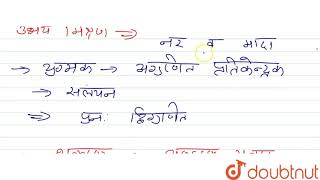 उभय मिश्रण ⇒ नर व मादा
→ युग्मक → अगुणित प्रतिकेन्द्रक
→ संलयन
⇒ पुनः द्विगुणित
doubtnut